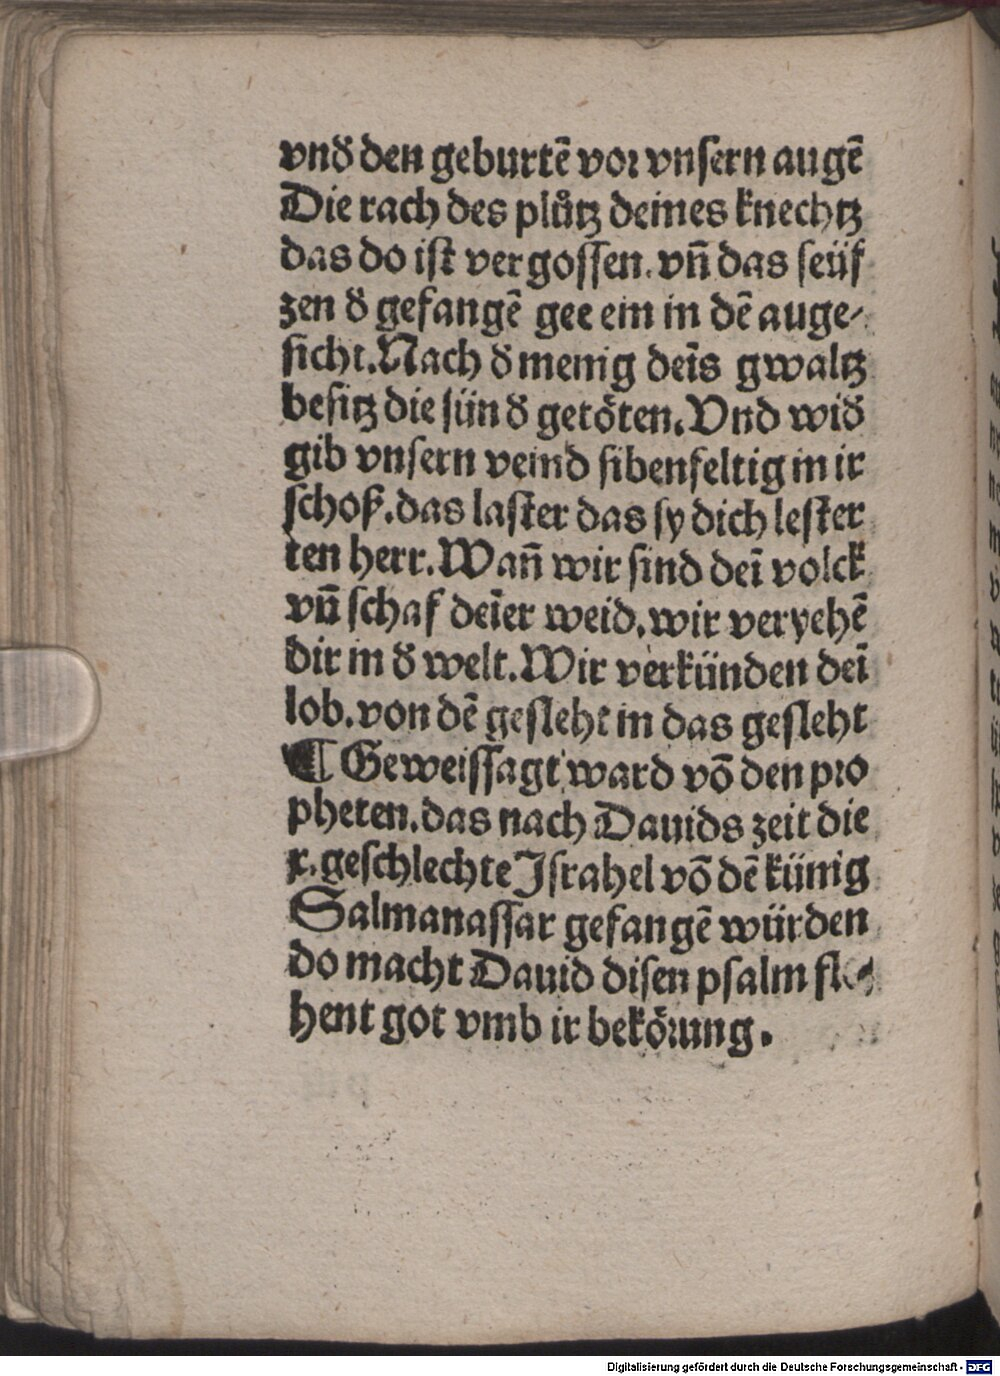 vnd̕ den geburtē vor vnsern augē
Die rach des plůtz deines knechtz
das do ist vergossen. vn̄ das seüf
zen d̕ gefangē gee ein in dē auge⸗
sicht. Nach d̕ menig deīs gwaltz
besitz die sün d̕ getöten. Vnd wid̕
gib vnsern veind sibenfeltig in ir
schoß. das laster das sy dich lester
ten herr. Wan̄ wir sind deī volck
vn̄ schaf deīer weid. wir veryehē
dir in d̕ welt. Wir verkünden deī
lob. von dē gesleht in das gesleht
¶ Geweissagt ward vō den pro
pheten. das nach Dauids zeit die
x. geschlechte Israhel vō dē künig
Salmanassar gefangē würden
do macht Dauid disen psalm fle⸗
hent got vmb ir bekörung.
Digitalisierung gefördert durch die Deutsche Forschungsgemeinschaft - DFG